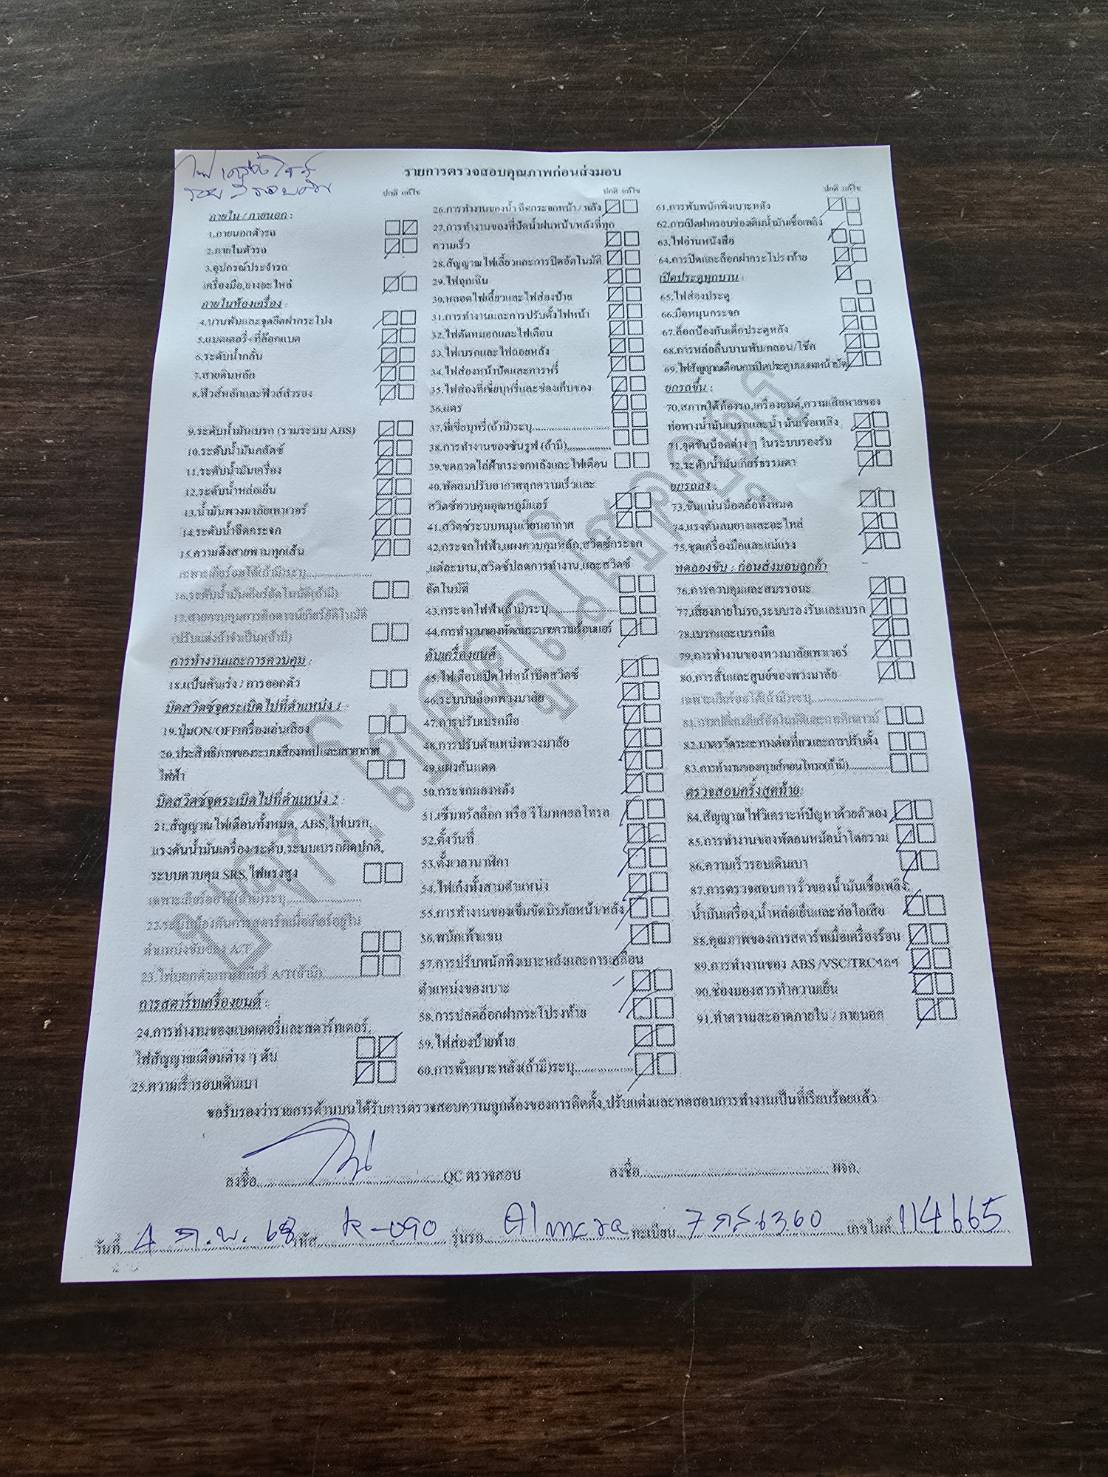 รายการตรวจสอบคุณภาพก่อนส่งมอบ
ปกติ แก้ไข
ภายใน / ภายนอก :
1.ภายนอกตัวรถ
2.ภายในตัวรถ
3.อุปกรณ์ประจำรถ
เครื่องมือ,ยางอะไหล่
ภายในห้องเครื่อง :
4.บานพับและจุดยึดฝากระโปง
5.แบตเตอรี่+ที่ล็อกแบต
6.ระดับน้ำกลั่น
7.สายดินหลัก
8.ฟิวส์หลักและฟิวส์สำรอง
9.ระดับน้ำมันเบรก (รวมระบบ ABS)
10.ระดับน้ำมันคลัตช์
11.ระดับน้ำมันเครื่อง
12.ระดับน้ำหล่อเย็น
13.น้ำมันพวงมาลัยเพาเวอร์
14.ระดับน้ำฉีดกระจก
15.ความตึงสายพานทุกเส้น
เฉพาะเกียร์ออโต้(ถ้ามี)ระบุ
16.ระดับน้ำมันเกียร์อัตโนมัติ(ถ้ามี)
17.สายควบคุมการคิกดาวน์เกียร์อัติโนมัติ
(ปรับแต่งถ้าจำเป็น(ถ้ามี)
การทำงานและการควบคุม :
18.แป้นคันเร่ง / การออกตัว
บิดสวิตช์จุดระเบิดไปที่ตำแหน่ง 1 :
19.ปุ่มON/OFFเครื่องเล่นเสียง
20.ประสิทธิภาพของระบบเสียงเทปและเสาอากาศ
ไฟฟ้า
บิดสวิตช์จุดระเบิดไปที่ตำแหน่ง 2 :
21.สัญญาณไฟเตือนทั้งหมด, ABS,ไฟเบรก,
แรงดันน้ำมันเครื่อง/ระดับ,ระบบเบรกผิดปกติ,
ระบบควบคุม SRS,ไฟแรงสูง
เฉพาะเกียร์ออโต้(ถ้ามี)ระบุ
22.ระบบป้องกันการสตาร์ทเมื่อเกียร์อยู่ใน
ตำแหน่งขับของ A/T
23.ไฟบอกตำแหน่งเกียร์ A/T(ถ้ามี)
การสตาร์ทเครื่องยนต์ :
24.การทำงานของแบตเตอรี่และสตาร์ทเตอร์,
ไฟสัญญาณเตือนต่าง ๆ ดับ
25.ความเร็วรอบเดินเบา
ปกติ แก้ไข
26.การทำงานของน้ำฉีดกระจกหน้า / หลัง
27.การทำงานของที่ปัดน้ำฝนหน้า/หลังที่ทุก
ความเร็ว
28.สัญญาณไฟเลี้ยวและการปิดอัตโนมัติ
29.ไฟฉุกเฉิน
30.หลอดไฟเลี้ยวและไฟส่องป้าย
31.การทำงานและการปรับตั้งไฟหน้า
32.ไฟตัดหมอกและไฟเตือน
33.ไฟเบรกและไฟถอยหลัง
34.ไฟส่องหน้าปัดและการหรี่
35.ไฟส่องที่เขี่ยบุหรี่และช่องเก็บของ
36.แตร
37.ที่เขี่ยบุหรี่(ถ้ามี)ระบุ
38.การทำงานของซันรูฟ(ถ้ามี)
39.ขดลวดไล่ฝ้ากระจกหลังและไฟเตือน
40.พัดลมปรับอากาศทุกความเร็วและ
สวิตช์ควบคุมอุณหภูมิแอร์
41.สวิตช์ระบบหมุนเวียนอากาศ
42.กระจกไฟฟ้า,แผงควบคุมหลัก,สวิตช์กระจก
,แต่ละบาน,สวิตช์ปลดการทำงาน,และสวิตช์
อัตโนมัติ
43.กระจกไฟฟ้า(ถ้ามี)ระบุ
44.การทำงานของพัดลมระบายความร้อนแอร์
ดับเครื่องยนต์
45.ไฟเตือนเปิดไฟหน้าปิดสวิตช์
46.ระบบปลล็อกพวงมาลัย
47.การปรับเบรกมือ
48.การปรับตำแหน่งพวงมาลัย
49.แผงกันแดด
50.กระจกมองหลัง
51.เซ็นทรัลล็อก หรือ รีโมทคอลโทรล
52.ตั้งวันที่
53.ตั้งเวลานาฬิกา
54.ไฟเก๋งทั้งสามตำแหน่ง
55.การทำงานของเข็มขัดนิรภัยหน้า/หลัง
56.พนักเท้าแขน
57.การปรับพนักพิงเบาะหลังและการเลื่อน
ตำแหน่งของเบาะ
58.การปลดล็อกฝากระโปรงท้าย
59.ไฟส่องป้ายท้าย
60.การพับเบาะหลัง(ถ้ามี)ระบุ
ปกติ แก้ไข
61.การพับพนักพิงเบาะหลัง
62.การเปิดฝาครอบช่องเติมน้ำมันเชื้อเพลิง
63.ไฟอ่านหนังสือ
64.การปิดและล็อกฝากระโปรงท้าย
เปิดประตูทุกบาน :
65.ไฟส่องประตู
66.มือหมุนกระจก
67.ล็อกป้องกันเด็กประตูหลัง
68.การหล่อลื่นบานพับ/กลอน/โช๊ค
69.ไฟสัญญาณเตือนการปิดประตูบนแผงหน้าปัด
ยกรถขึ้น :
70.สภาพใต้ท้องรถ,เครื่องยนต์,ความเสียหายของ
ท่อทางน้ำมันเบรกและน้ำมันเชื้อเพลิง
71.จุดขันน็อตต่าง ๆ ในระบบรองรับ
72.ระดับน้ำมันเกียร์ธรรมดา
ยกรถลง :
73.ขันแน่นน็อตล้อทั้งหมด
74.แรงดันลมยางและอะไหล่
75.ชุดเครื่องมือและแม่แรง
ทดลองขับ : ก่อนส่งมอบลูกค้า
76.การควบคุมและสมรรถนะ
77.เสียงภายในรถ,ระบบรองรับและเบรก
78.เบรกและเบรกมือ
79.การทำงานของพวงมาลัยเพาเวอร์
80.การสั่นและศูนย์ของพวงมาลัย
เฉพาะเกียร์ออโต้(ถ้ามี)ระบุ
81.การเปลี่ยนเกียร์อัตโนมัติและการคิกดาวน์
82.มาตรวัดระยะทางต่อเที่ยวและการปรับตั้ง
83.การทำงานของครุยส์คอนโทรล(ถ้ามี)
ตรวจสอบครั้งสุดท้าย:
84.สัญญาณไฟวิเคราะห์ปัญหาด้วยตัวเอง
85.การทำงานของพัดลมหม้อน้ำโดยรวม
86.ความเร็วรอบเดินเบา
87.การตรวจสอบการรั่วของน้ำมันเชื้อเพลิง,
น้ำมันเครื่อง,น้ำหล่อเย็นและท่อไอเสีย
88.คุณภาพของการสตาร์ทเมื่อเครื่องร้อน
89.การทำงานของ ABS /VSC/TRCฯลฯ
90.ช่องมองสารทำความเย็น
91.ทำความสะอาดภายใน / ภายนอก
ขอรับรองว่ารายการด้านบนได้รับการตรวจสอบความถูกต้องของการติดตั้ง,ปรับแต่งและทดสอบการทำงานเป็นที่เรียบร้อยแล้ว
ลงชื่อ QC ตรวจสอบ ลงชื่อ ผจก.
วันที่ 4 ก.พ. 68 รหัส K-090 รุ่นรถ Almera ทะเบียน 7 กส 6360 เลขไมล์ 114665